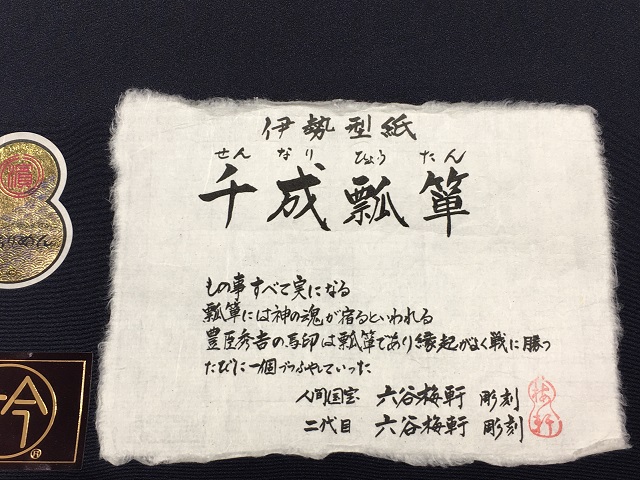 伊勢型紙
せん なり ひょう たん
千成瓢箪
もの事すべて実になる
瓢箪には神の魂が宿るといわれる
豊臣秀吉の馬印は瓢箪であり縁起がよく戦に勝つ
たびに一個づつふやしていった
人間国宝 六谷梅軒 彫刻
二代目 六谷梅軒 彫刻
梅軒